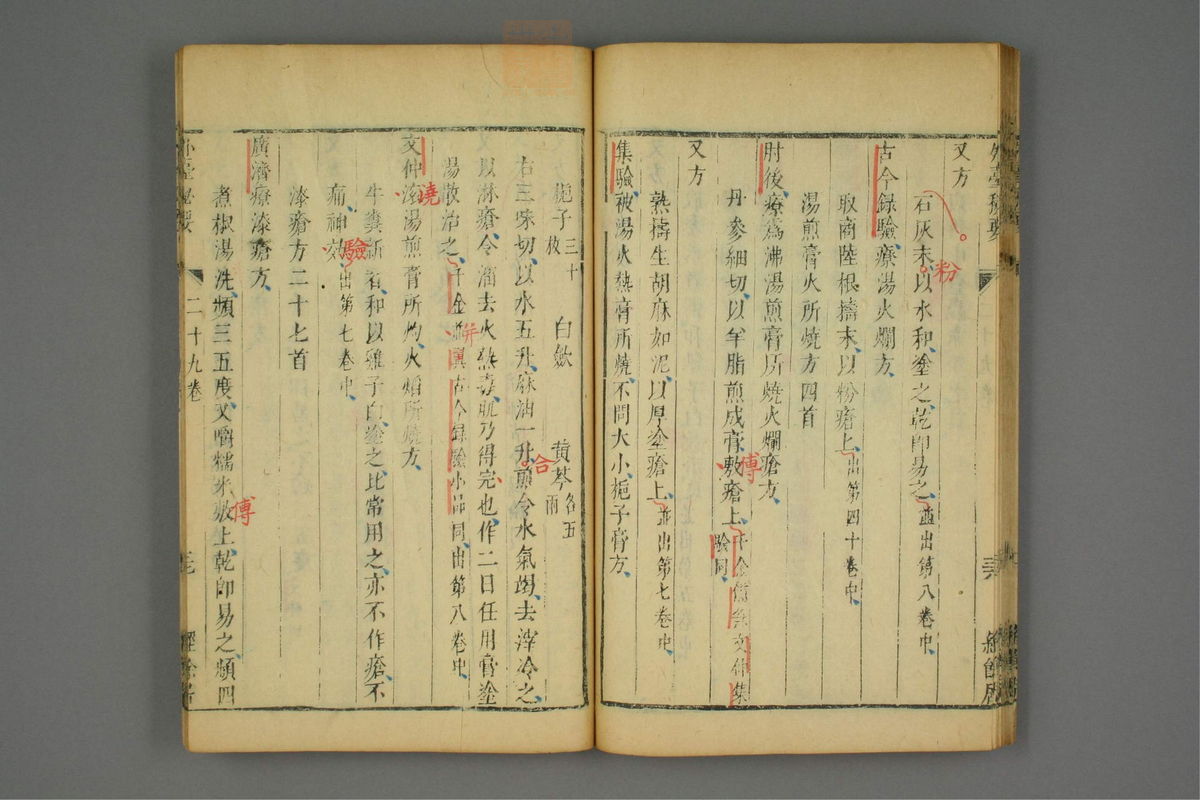 外臺秘要
又方
石灰末以水和塗之乾即易之並出第八卷中
粉
古今録驗療湯火爛方
取商陸根擣末以粉瘡上出第四十卷中
湯煎膏火所燒方四首
肘後療為沸湯煎膏所燒火爛瘡方
丹參細切以羊脂煎成膏敷瘡上千金備急文仲集驗同
傅
又方
熟擣生胡麻如泥以厚塗瘡上並出第七卷中
集驗被湯火熱膏所燒不問大小梔子膏方
梔子三十枚 白蘞 黄芩各五兩
右三味切以水五升麻油一升煎令水氣竭去滓冷之
合
以淋瘡令溜去火熱毒肌乃得完也作二日任用膏塗
湯散治之千金並翼古今録驗小品同出第八卷中
并
文仲湯煎膏所灼火燒方
澆
牛糞新者和以雞子白塗之比常用之亦不作瘡不
痛神効出第七卷中
驗
漆瘡方二十七首
廣濟療漆瘡方
煮椒湯洗頻三五度又嚼糯米敷上乾即易之頻四
傅
二十九卷
經餘居